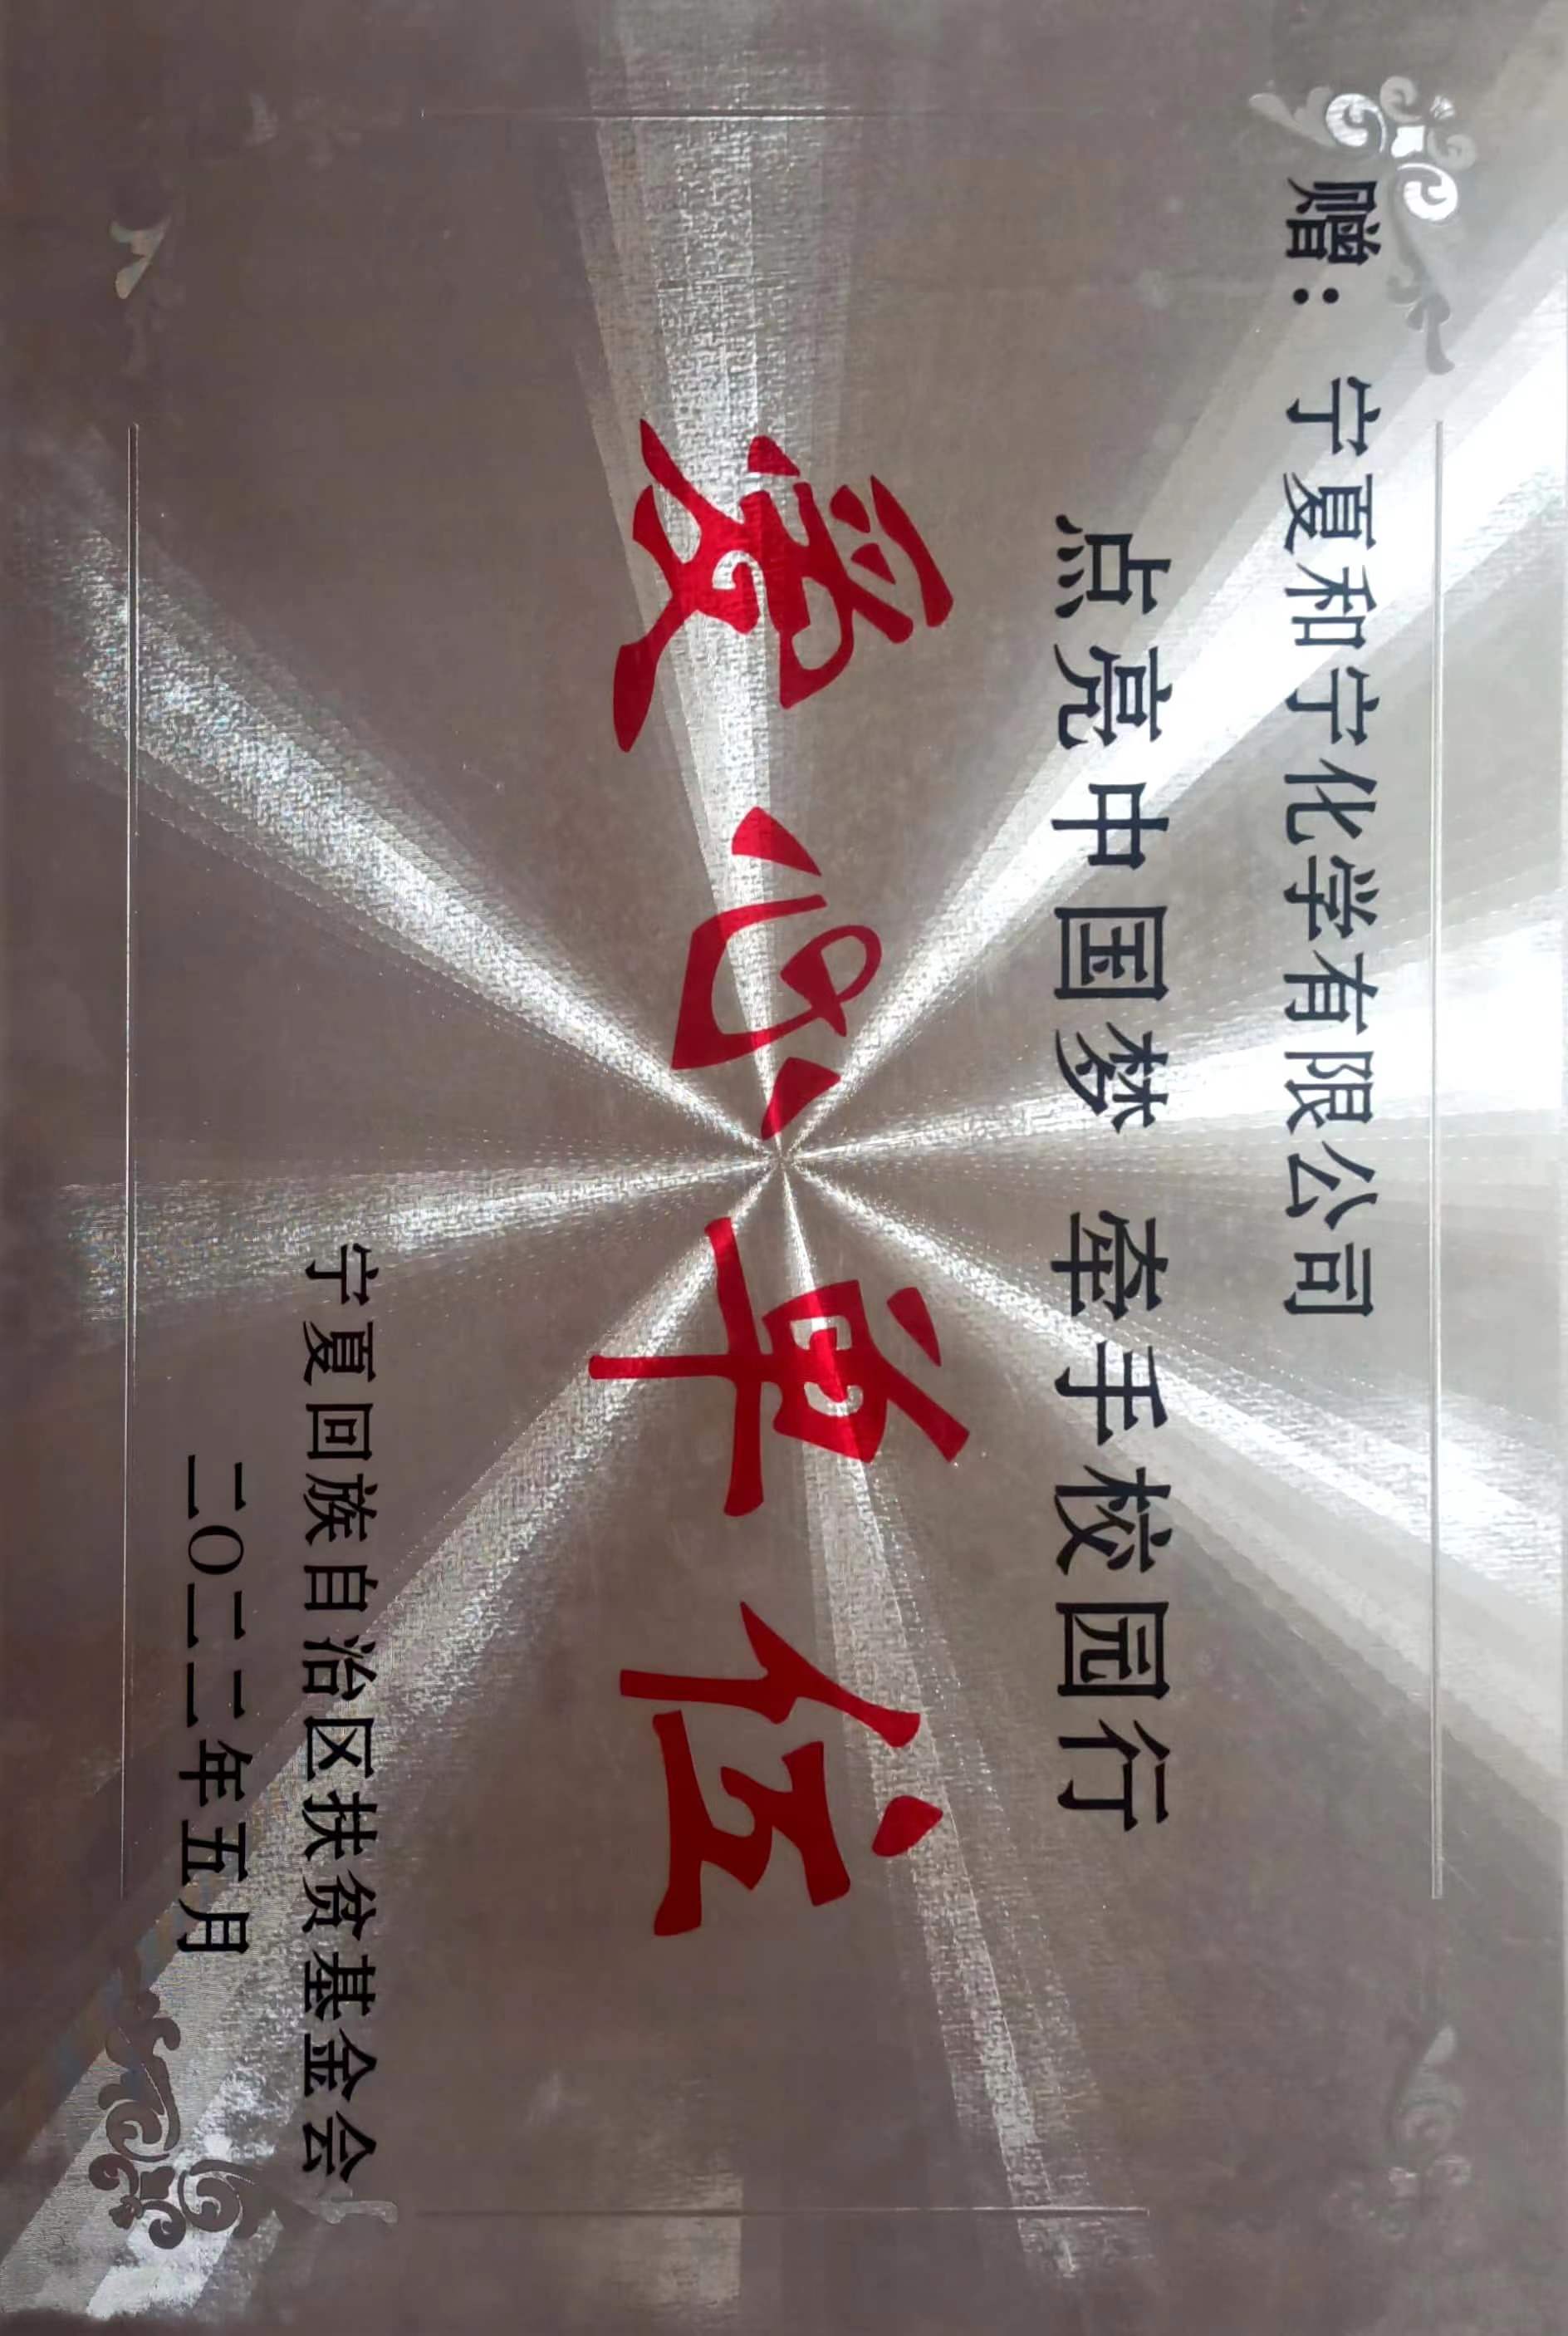 赠：宁夏和宁化学有限公司
点亮中国梦 牵手校园行
爱心单位
宁夏回族自治区扶贫基金会
二〇二二年五月